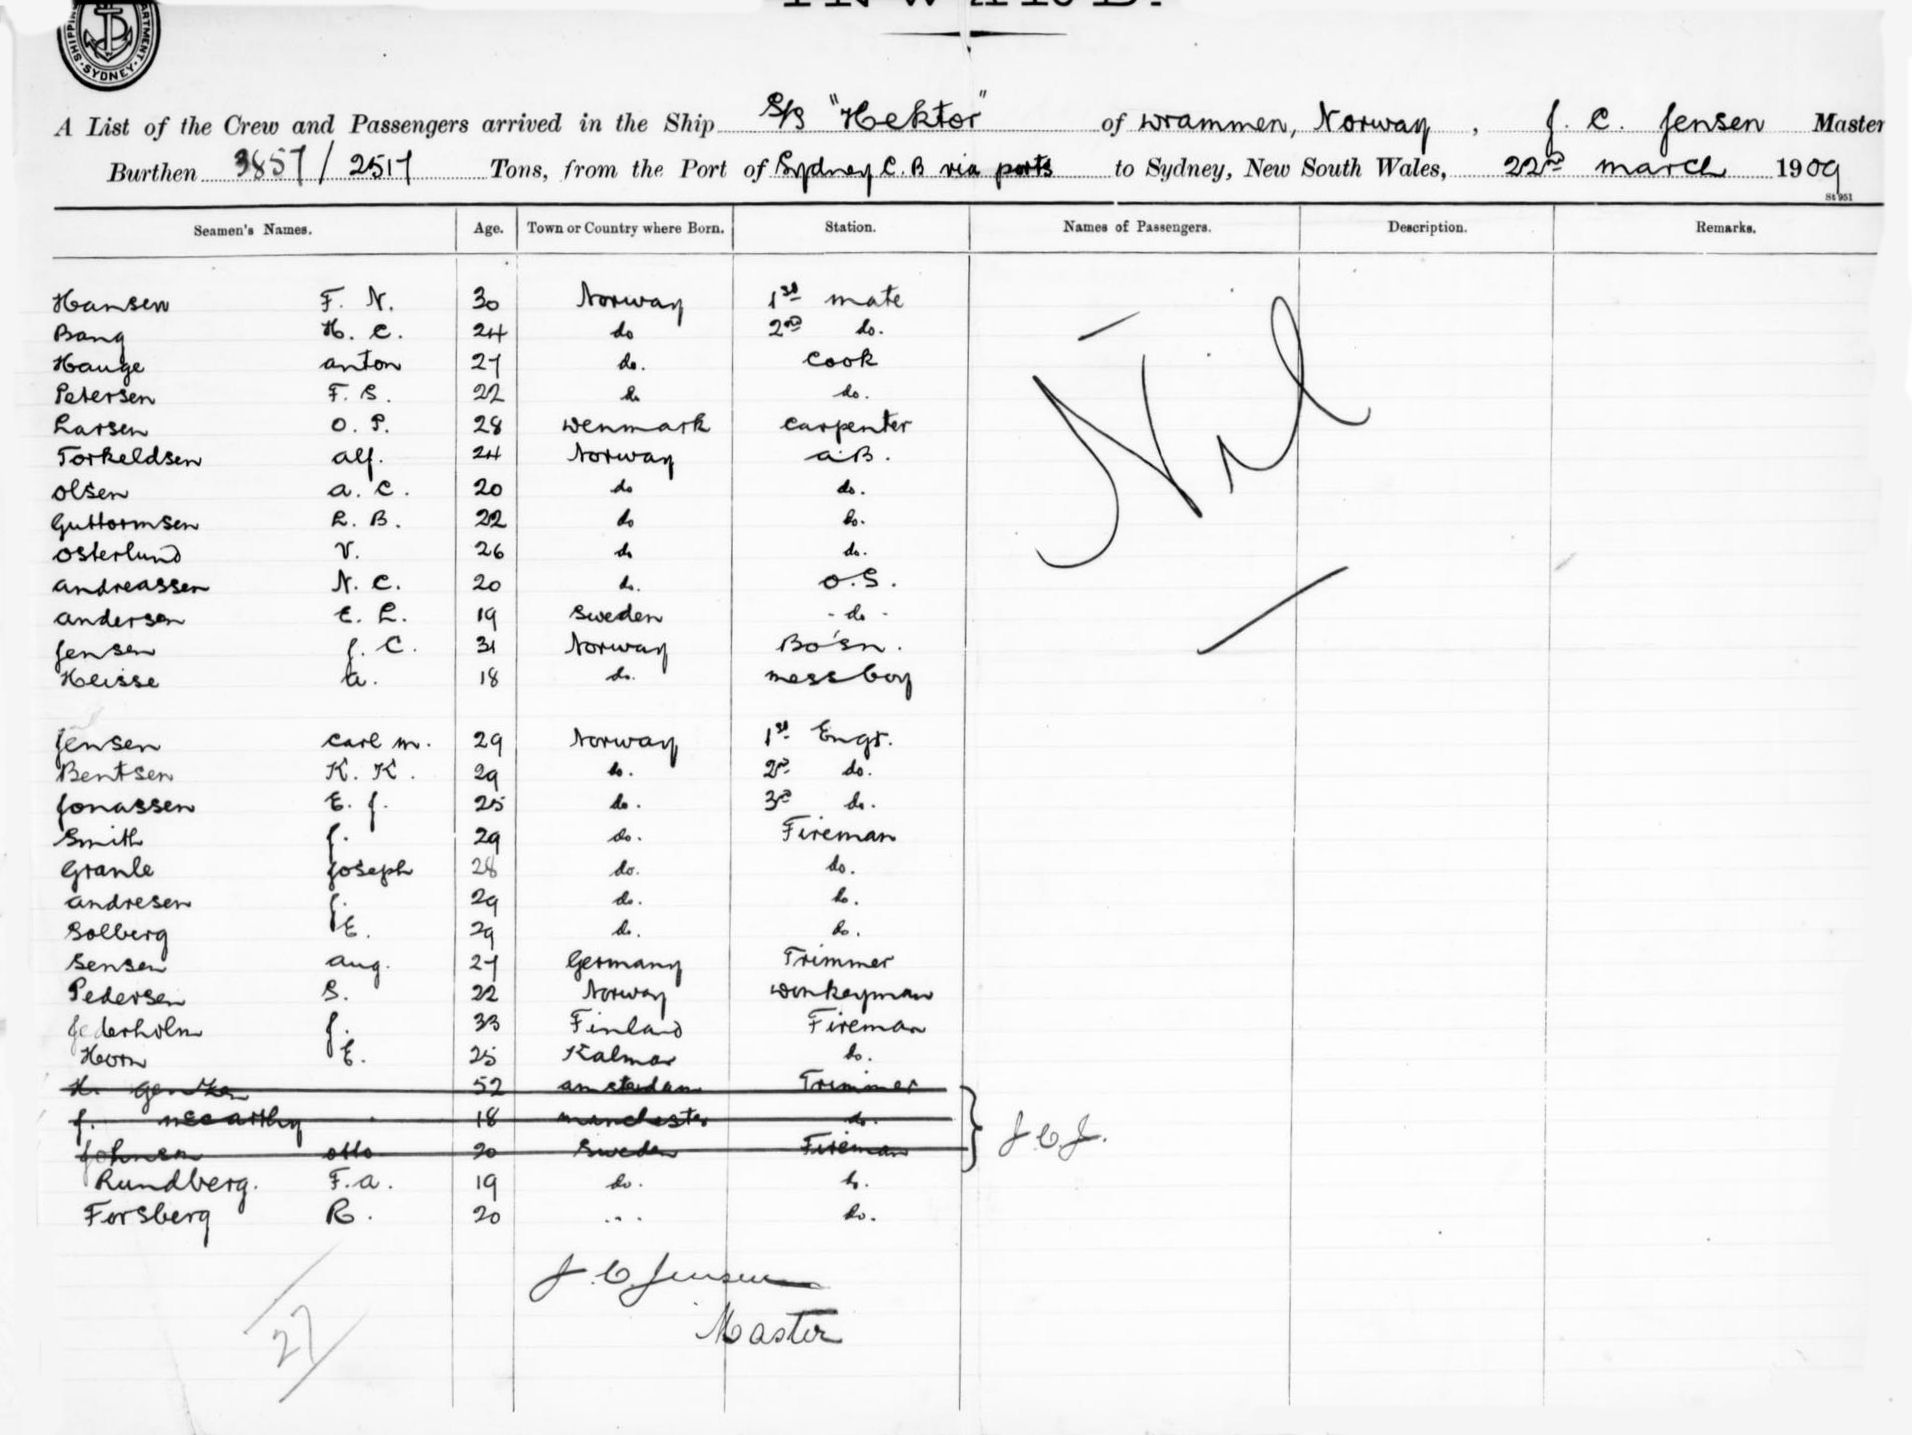 SHIPPING DEPARTMENT. SYDNEY.
INWARD.
A List of the Crew and Passengers arrived in the Ship S/S "Hektor" of Drammen, Norway, J. C. Jensen Master
Burthen 3857/2517 Tons, from the Port of Sydney C.B via ports to Sydney, New South Wales, 22nd march 1909
St 951
Seamen's Names. Age. Town or Country where Born. Station. Names of Passengers. Description. Remarks.
Hansen F. N. 30 Norway 1st mate
Bang H. C. 24 do 2nd do.
Hauge anton 27 do. Cook
Petersen F. S. 22 do do.
Larsen O. P. 28 Denmark Carpenter
Torkeldsen alf. 24 Norway a.B.
Olsen a. C. 20 do do.
Guttormsen L. B. 22 do do.
Osterlund V. 26 do do.
andreassen N. C. 20 do. O.S.
andersen E. L. 19 Sweden - do -
Jensen J. C. 31 Norway Bo'sn.
Heisse a. 18 do. mess boy
Nil
Jensen Carl m. 29 Norway 1st Engr.
Bentsen K. K. 29 do. 2nd do.
Jonassen E. J. 25 do. 3rd do.
Smith J. 29 do. Fireman
Granle Joseph 28 do. do.
andresen J. 29 do. do.
Solberg E. 29 do. do.
Jensen aug. 27 Germany Trimmer
Pedersen S. 22 Norway Donkeyman
Jederholm J. 33 Finland Fireman
Horn E. 25 Kalmar do.
H. 52 amsterdam Trimmer
J. mccarthy 18 manchester do.
J.C.J.
Johnsen otto 20 Sweden Fireman
Rundberg. F. a. 19 do. do.
Forsberg R. 20 ... do.
J. C. Jensen
Master
27